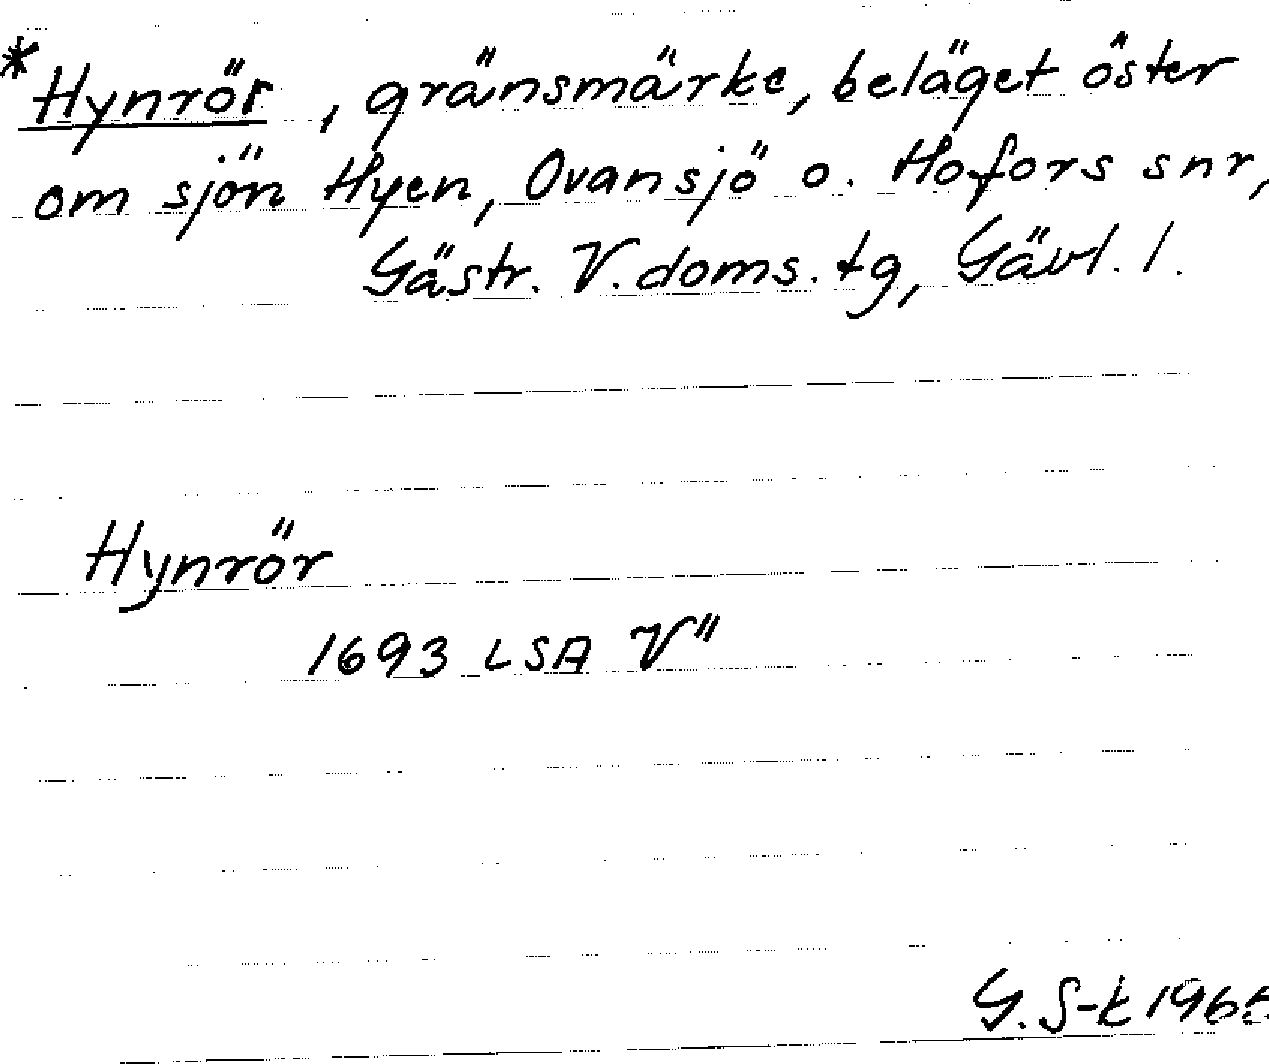 *Hynrör, gränsmärke, beläget öster
om sjön Hyen, Ovansjö o. Hofors snr,
Gästr. V. doms. tg, Gävl. l.
Hynrör
1693 LSA V"
G. S-k